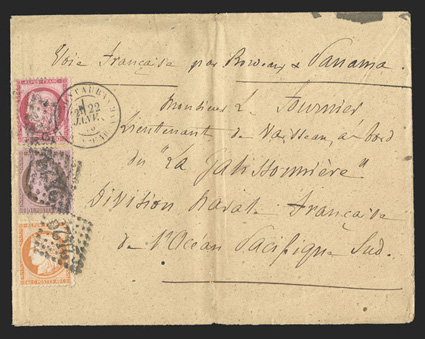 Voie Française par Bordeaux & Panama.
Monsieur L. Fournier
Lieutenant de Vaisseau, à bord
du "La Galissonnière"
Division Navale Française
de l'Océan Pacifique Sud.
22
JANV.